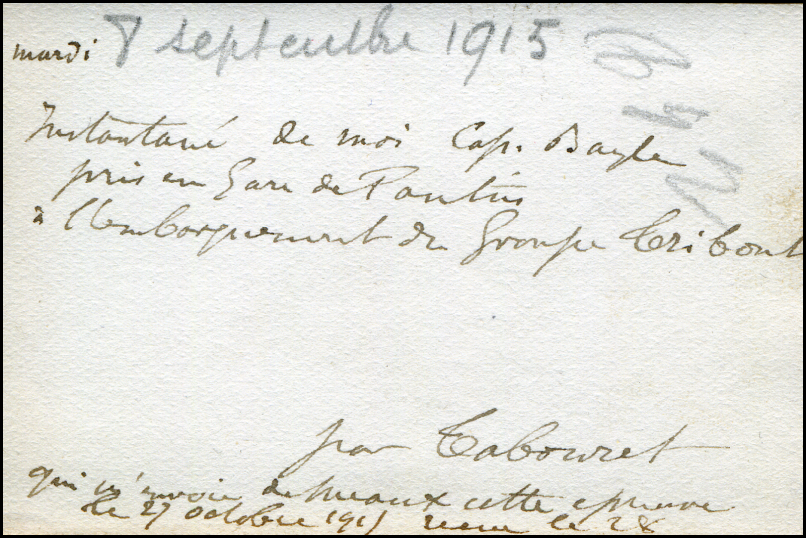 mardi 7 septembre 1915
Instantané de moi Cap. Bayle
pris en Gare de Pantin
à l'embarquement du Groupe Tribout
par Tabouret
qui m'envoie de Meaux cette épreuve
le 27 octobre 1915 reçue le 28